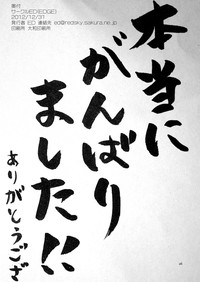 奥付
サークルED(EDGE)
2012/12/31
発行者 ED 連絡先 ed@nedsky.sakura.ne.jp
印刷所 大和印刷所
本当に
がんばり
ました!!
ありがとうござ